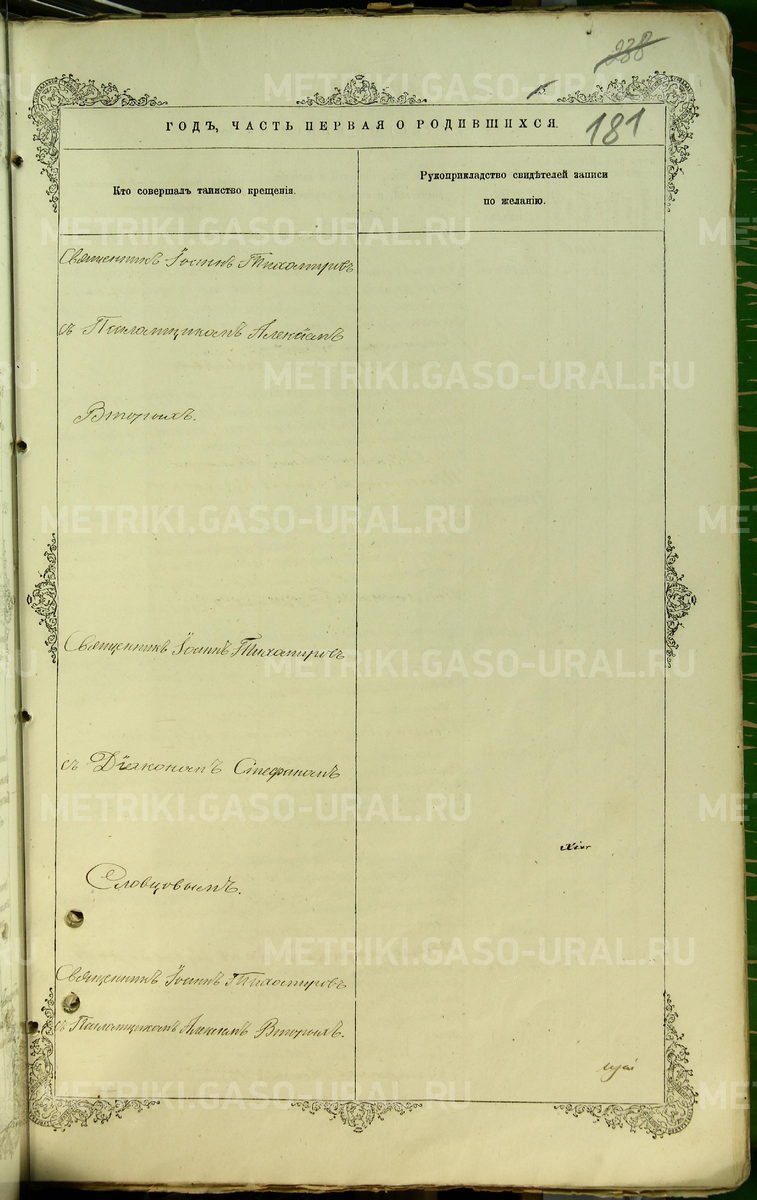 238
181
ГОДЪ, ЧАСТЬ ПЕРВАЯ О РОДИВШИХСЯ.
Кто совершалъ таинство крещенія.
Рукоприкладство свидѣтелей записи
по желанію.
Священникъ Іоаннъ Тихомировъ
съ Псаломщикомъ Алексѣемъ
Вторыхъ.
Священникъ Іоаннъ Тихомировъ
съ Діякономъ Стефаномъ
Словцовымъ.
Священникъ Іоаннъ Тихомировъ
съ Псаломщикомъ Алексѣемъ Вторыхъ.
METRIKI.GASO-URAL.RU